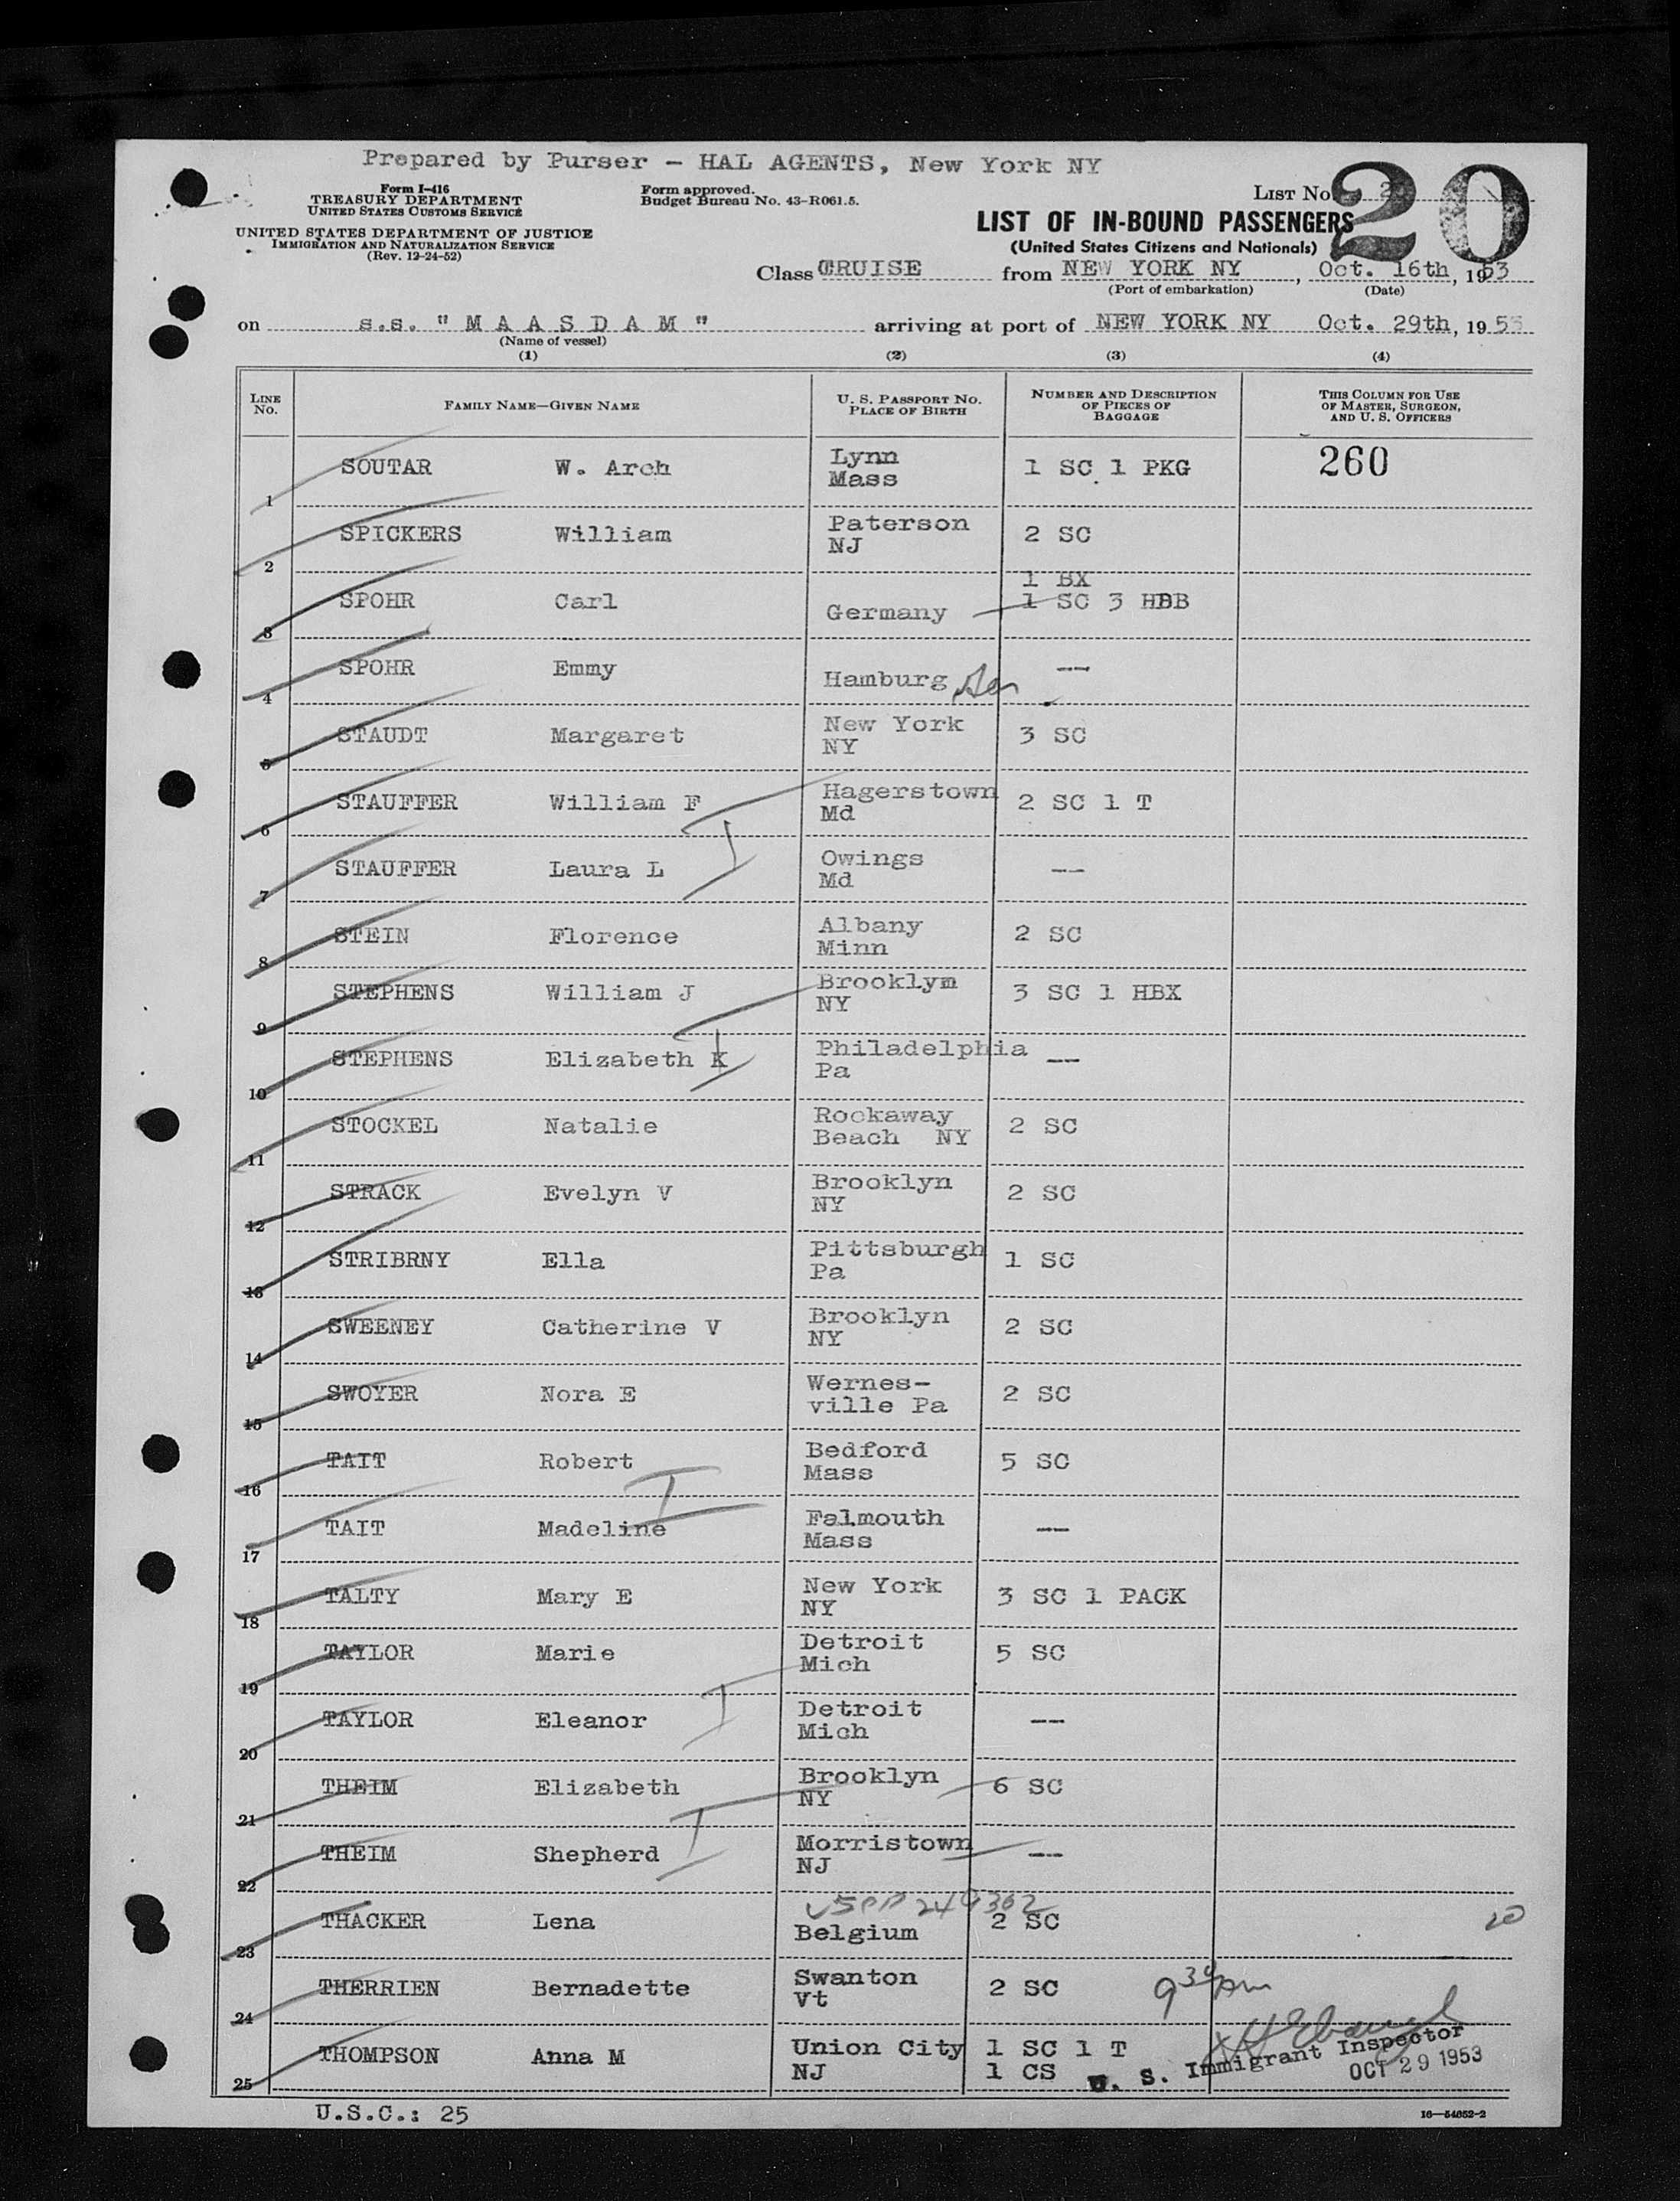 Prepared by Purser - HAL AGENTS, New York NY
Form I-416
TREASURY DEPARTMENT
UNITED STATES CUSTOMS SERVICE
UNITED STATES DEPARTMENT OF JUSTICE
IMMIGRATION AND NATURALIZATION SERVICE
(Rev. 12-24-52)
Form approved.
Budget Bureau No. 43-R061.5.
LIST No. 20
LIST OF IN-BOUND PASSENGERS
(United States Citizens and Nationals)
Class CRUISE from NEW YORK NY, Oct. 16th, 1953
(Port of embarkation) (Date)
on s.s. "MAASDAM" arriving at port of NEW YORK NY Oct. 29th, 1953
(Name of vessel)
(1) (2) (3) (4)
LINE No. FAMILY NAME—GIVEN NAME U. S. PASSPORT NO. PLACE OF BIRTH NUMBER AND DESCRIPTION OF PIECES OF BAGGAGE THIS COLUMN FOR USE OF MASTER, SURGEON, AND U. S. OFFICERS
1 SOUTAR W. Arch Lynn Mass 1 SC 1 PKG 260
2 SPICKERS William Paterson NJ 2 SC
3 SPOHR Carl Germany 1 BX 1 SC 3 HBB
4 SPOHR Emmy Hamburg --
5 STAUDT Margaret New York NY 3 SC
6 STAUFFER William F Hagerstown Md 2 SC 1 T
7 STAUFFER Laura L Owings Md --
8 STEIN Florence Albany Minn 2 SC
9 STEPHENS William J Brooklym NY 3 SC 1 HBX
10 STEPHENS Elizabeth K Philadelphia Pa --
11 STOCKEL Natalie Rockaway Beach NY 2 SC
12 STRACK Evelyn V Brooklyn NY 2 SC
13 STRIBRNY Ella Pittsburgh Pa 1 SC
14 SWEENEY Catherine V Brooklyn NY 2 SC
15 SWOYER Nora E Wernes-ville Pa 2 SC
16 TAIT Robert Bedford Mass 5 SC
17 TAIT Madeline Falmouth Mass --
18 TALTY Mary E New York NY 3 SC 1 PACK
19 TAYLOR Marie Detroit Mich 5 SC
20 TAYLOR Eleanor Detroit Mich --
21 THEIM Elizabeth Brooklyn NY 6 SC
22 THEIM Shepherd Morristown NJ --
23 THACKER Lena USPP 249362 Belgium 2 SC 20
24 THERRIEN Bernadette Swanton Vt 2 SC 9 30 pm
25 THOMPSON Anna M Union City NJ 1 SC 1 T 1 CS
U. S. Immigrant Inspector
OCT 29 1953
U.S.C.: 25
16—54652-2